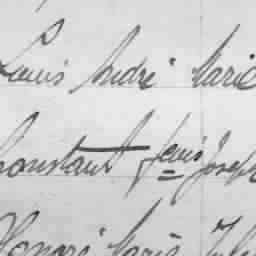 Louis André Marie
Constant Louis Joseph
Honoré Marie Jules